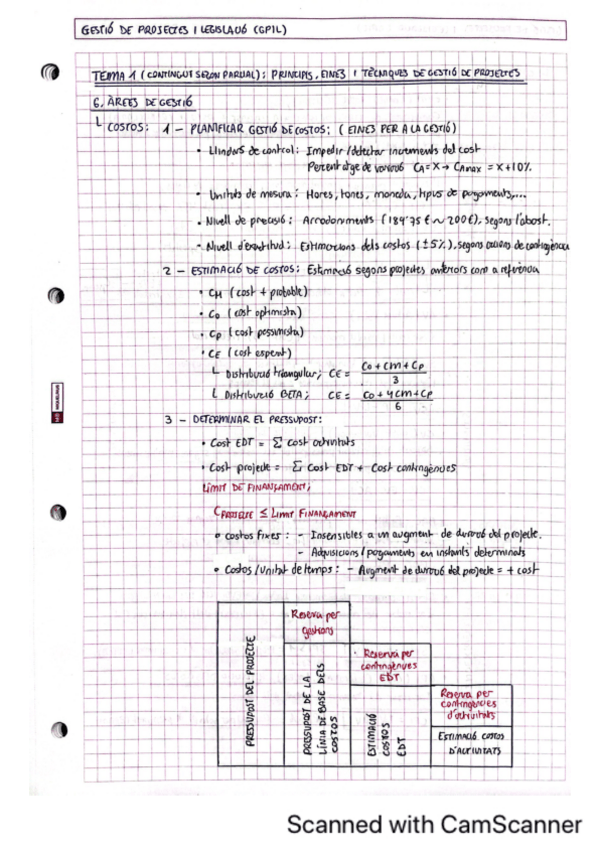 GESTIÓ DE PROJECTES I LEGISLACIÓ (GPIL)
TEMA 1 (CONTINGUT SEGON PARCIAL): PRINCIPIS, EINES I TÈCNIQUES DE GESTIÓ DE PROJECTES
6. ÀREES DE GESTIÓ
COSTOS: 1 – PLANIFICAR GESTIÓ DE COSTOS: (EINES PER A LA GESTIÓ)
• Llindars de control: Impedir/detectar increments del cost
Percentatge de variació CA = X → CAmax = X + 10%.
• Unitats de mesura: Hores, tones, moneda, tipus de pagaments,...
• Nivell de precisió: Arrodoniments (189'75 € ~ 200€), segons l'abast.
• Nivell d'exactitud: Estimacions dels costos (±5%), segons accions de contingència
2 – ESTIMACIÓ DE COSTOS: Estimació segons projectes anteriors com a referència
• CM (cost + probable)
• CO (cost optimista)
• CP (cost pessimista)
• CE (cost esperat)
Distribució triangular; CE = CO + CM + CP / 3
Distribució BETA; CE = CO + 4CM + CP / 6
3 – DETERMINAR EL PRESSUPOST:
• Cost EDT = Σ cost activitats
• Cost projecte = Σ Cost EDT + Cost contingències
LÍMIT DE FINANÇAMENT;
CPROJECTE ≤ LÍMIT FINANÇAMENT
• Costos fixes: – Insensibles a un augment de duració del projecte.
– Adquisicions/pagaments en instants determinats
• Costos/Unitat de temps: – Augment de duració del projecte = + cost
PRESSUPOST DEL PROJECTE
Reserva per gestions
PRESSUPOST DE LA LÍNIA DE BASE DELS COSTOS
Reserva per contingències EDT
ESTIMACIÓ COSTOS EDT
Reserva per contingències d'activitats
ESTIMACIÓ COSTOS D'ACTIVITATS
Scanned with CamScanner